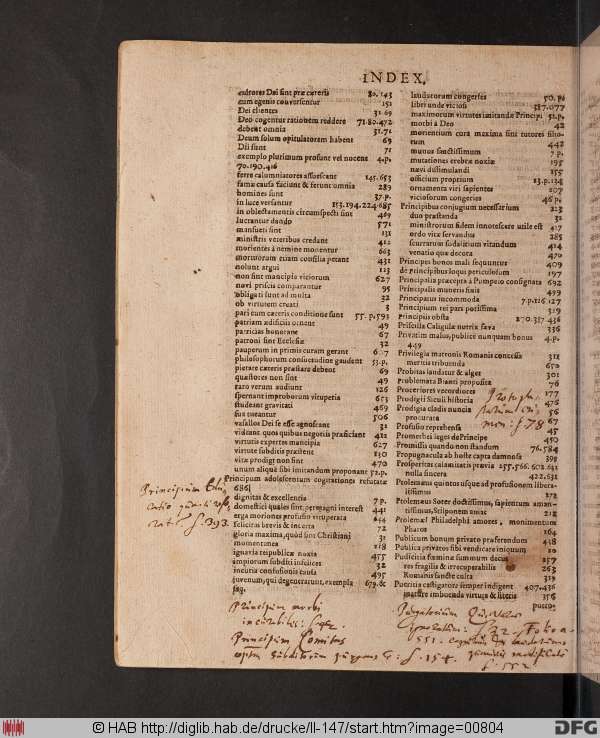 INDEX.
editores Dei sint præ cæteris 80.143
cum egenis conversentur 151
Dei clientes 31.69
Deo cogentur rationem reddere 71.80.472
debent omnia 31.71
Deum solum opitulatorem habent 69
Dii sunt 71
exemplo plurimum prosunt vel nocent 4.p.
70.190.416
ferre calumniatores assuescant 145.653
famæ causa faciunt & ferunt omnia 289
homines sunt 37.p.
in luce versantur 153.194.224.685
in oblectamentis circumspecti sint 469
lucrantur dando 571
mansueti sint 131
ministris veteribus credant 412
morientes à nemine moventur 663
mortuorum etiam consilia petant 431
nolunt argui 113
non sint mancipia vitiorum 627
novi priscis comparantur 95
obligati sunt ad multa 32
ob virtutem creati 3
pari cum cæteris conditione sunt 55.p.593
patriam ædificiis ornent 49
patricias honorare 67
patroni sint Ecclesiæ 32
pauperum in primis curam gerant 607
philosophorum consuetudine gaudent 53.p.
pietate cæteris præstare debent 69
quæstores non sint 49
raro verum audiunt 126
spernant improborum vituperia 653
studeant gravitati 469
sus tueantur 506
vasallos Dei se esse agnoscant 31
videant, quos quibus negotiis præficiant 412
virtutis expertes mancipia 627
virtute subditis præstent 130
vitæ prodigi non sint 470
unum aliquē sibi imitandum proponant 52.p.
Principum adolescentum cogitationes refutatæ
686
dignitas & excellentia 7.p.
domestici quales sint, permagni interest 441
erga moriones profusio vituperata 644
felicitas brevis & incerta 72
gloria maxima, quòd sint Christiani 31
momentanea 218
ignavia reipublicæ noxia 455
impiorum subditi infelices 32
incuria confusionis causa 495
juvenum, qui degenerarunt, exempla 679.&
seq.
laudatorum congeries 50.p.
libri unde viciosi 587.677
maximorum virtutes imitandæ Principi 52.p.
morbi à Deo 42
morientium cora maxima sint tutores filio-
rum 442
munus sanctissimum 7.p.
mutationes crebræ noxiæ 195
nævi dissimulandi 155
officium proprium 13.p.124
ornamenta viri sapientes 207
viciosorum congeries 46.p.
Principibus conjugium necessarium 223
duo præstanda 32
ministrorum fidem innotescere utile est 417
ordo vitæ servandus 285
scurrarum sodalitium vitandum 414
venatio quæ decora 470
Principes bonos mali sequuntur 409
de principibus loqui periculosum 197
Principalia præcepta à Pompeio consignata 692
Principalis muneris finis 499
Principatus incommoda 7.p.116.127
Principium rei pars potissima 319
Principiis obsta 270.317.436
Priscilla Caligulæ nutrix sæva 336
Privatim malus, publicè nunquam bonus 4.p.
449
Privilegia matronis Romanis concessa 311
meritis tribuenda 650
Probitas laudatur & alget 301
Problemata Bianti proposita 76
Proceriores vecordiores 177
Prodigii Siculi historia 476
Prodigia cladis nuncia 56
procurata 67
Profusio reprehensa 45
Promethei leges de Principe 450
Promissis quando non standum 76.584
Propugnacula ab hoste capta damnosa 398
Prosperitas calamitatis prævia 255.566.602.641
nulla sincera 422.641
Ptolemæus quintus usque ad profusionem libera-
lissimus 172
Ptolemæus Soter doctissimus, sapientum aman-
tissimus, Stilponem amat 212
Ptolemæi Philadelphi amores, monimentum
Pharos 164
Publicum bonum privato præferendum 438
Publica privatos sibi vendicare iniquum 20
Pudicitia fœminæ summum decus 257
res fragilis & irrecuperabilis 263
Romanis sanctè culta 319
Pueritia castigatore semper indigent 407.436
mature imbuenda virtute & literis 356
pueros
Principum morbi
incurabiles: f. 42.
Principum Comitas
f. 154.
f. 393.
f. 78
Folio
551.
f. 552
© HAB http://diglib.hab.de/drucke/ll-147/start.htm?image=00804
DFG